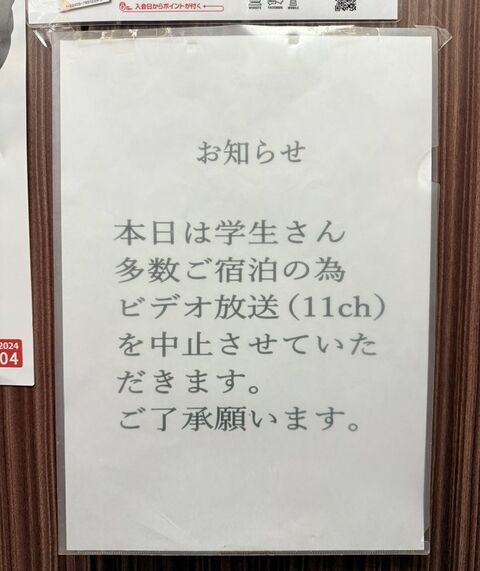 入会日からポイントが付く
WEBSITE FACEBOOK MOBILE
お知らせ
本日は学生さん
多数ご宿泊の為
ビデオ放送(11ch)
を中止させていた
だきます。
ご了承願います。
2024
04